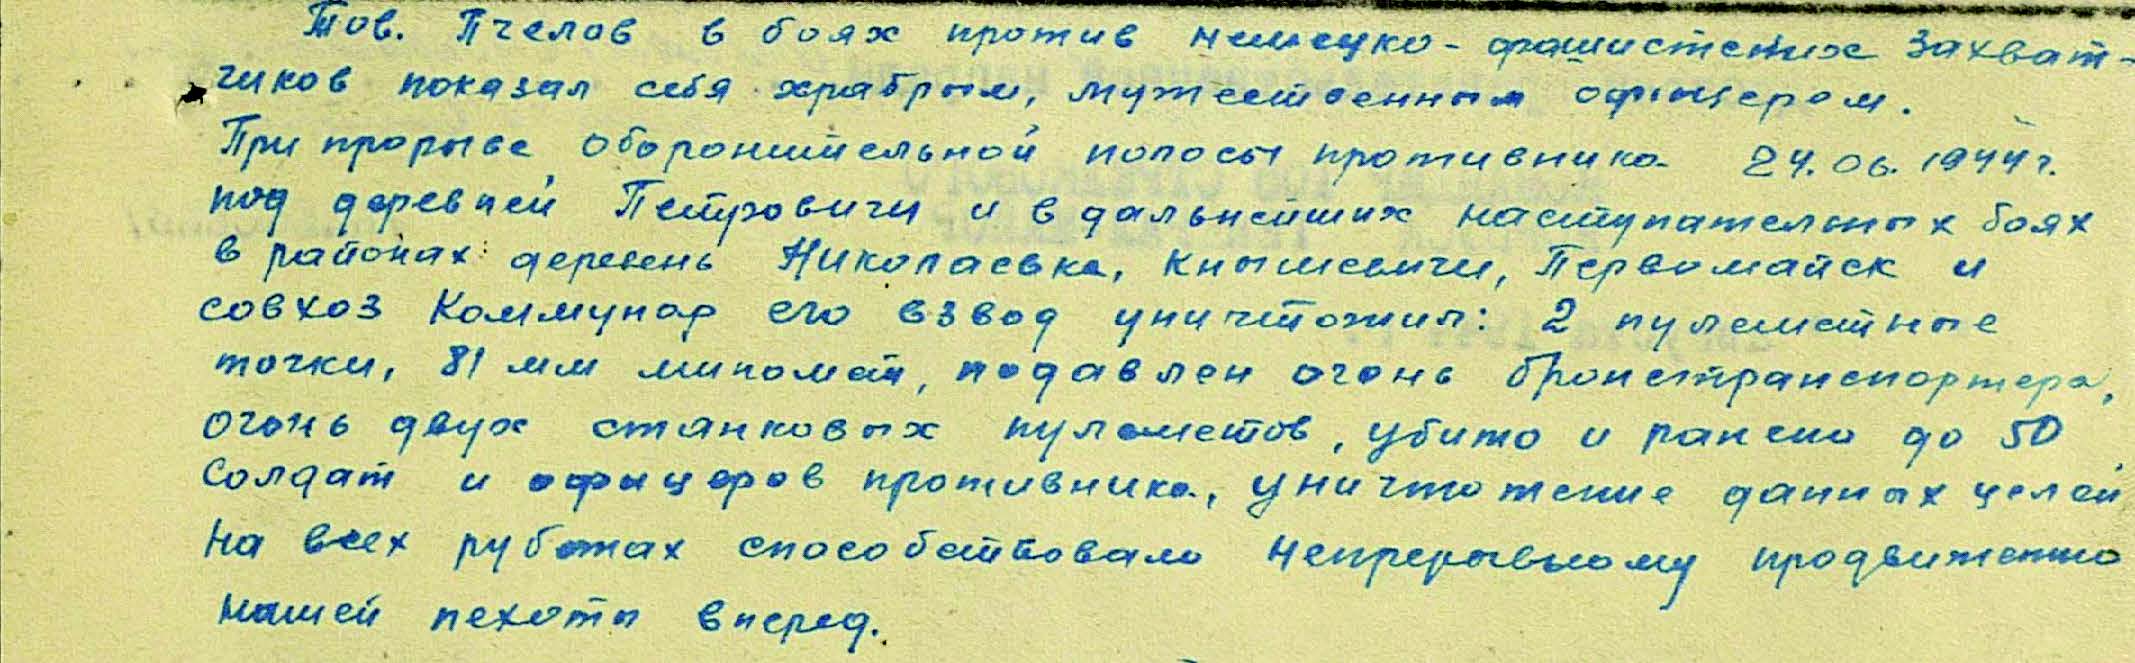 Тов. Пчелов в боях против немецко-фашистских захват-
чиков показал себя храбрым, мужественным офицером.
При прорыве оборонительной полосы противника 24.06.1944 г.
под деревней Петровичи и в дальнейших наступательных боях
в районах деревень Николаевка, Кнышевичи, Первомайск и
совхоз Коммунар его взвод уничтожил: 2 пулеметные
точки, 81 мм миномет, подавлен огонь бронетранспортера,
огонь двух станковых пулеметов, убито и ранено до 50
солдат и офицеров противника, уничтожение данных целей
на всех рубежах способствовало непрерывному продвижению
нашей пехоты вперед.